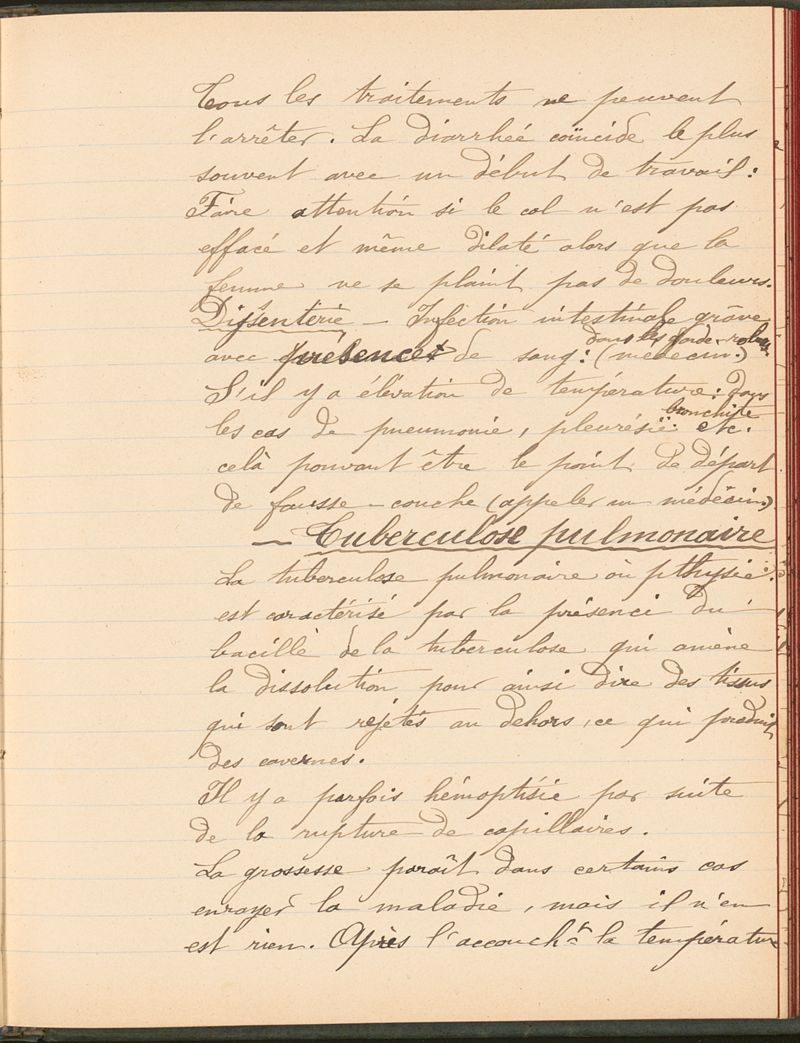 Tous les traitements ne peuvent
l'arrêter. La diarrheé coïncide le plus
souvent avec un début de travail :
Faire attention si le col n'est pas
effacé et même dilaté alors que la
femme ne se plaint pas de douleurs.
Dissenterie – Infection intestinale grave
dans les garde-robes
avec présence de sang : (médecin.)
S'il y a élévation de température : dans
bronchite
les cas de pneumonie, pleurésie. etc.
celà pouvant être le point de départ
de fausse-couche (appeler un médecin)
– Tuberculose pulmonaire
La tuberculose pulmonaire où pthysie.
est caractérisé par la présence du
bacille de la tuberculose qui amène
la dissolution pour ainsi dire des tissus
qui sont rejetés au dehors, ce qui produit
des cavernes.
Il y a parfois hémoptisie par suite
de la rupture de capillaires.
La grossesse paraît dans certains cas
enrayer la maladie, mais il n'en
est rien. Après l'accouch^t la températur